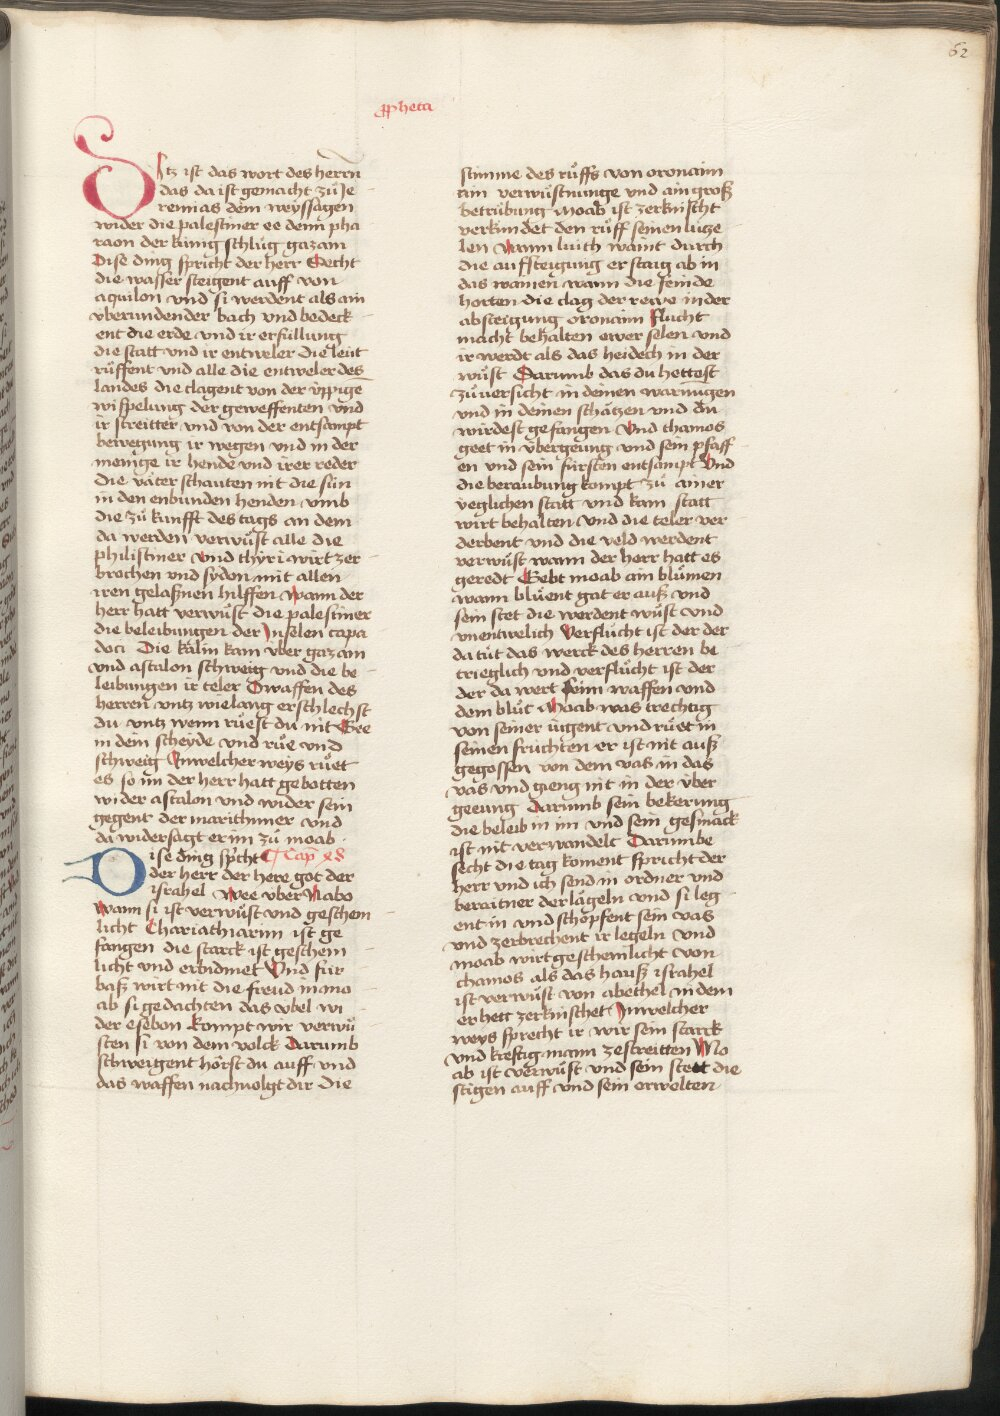 62
ꝓpheta
Sitz ist das wort des herrn
das da ist gemacht zů Je
remias dem weyssagen
wider die palestiner ee denn pha
raon der kúnig schlůg gazam
Dise ding spricht der herr Secht
die wasser steigent auff von
aquilon vnd si werdent als ain
vberundender bach vnd bedeck
ent die erde vnd ir erfullung
die statt vnd ir entweler Die leút
růffent vnd alle die entweler des
landes die clagent von der v́ppige
wispelung der geweffenten vnd
ir streitter vnd von der entsampt
bewegung ir wegen vnd in der
menige ir hende vnd irer reder
Die väter schauten nit die sún
in den enbunden henden vmb
die zů kunfft des tags an dem
da werden verwůst alle die
philistiner vnd thyri wirt zer
brochen vnd sydon mit allen
iren gelaßnen hilffen wann der
herr hatt verwůst die palestiner
die beleibungen der Inselen capa
doci Die kälin kam vber gazam
vnd astalon schweig vnd die be
leibungen ir teler O waffen des
herren vntz wie lang erschlechst
du vntz wenn růest du nit Gee
in dein scheyde vnd růe vnd
schweig Inwelcher weys růet
es so im der herr hatt gebotten
wider astalon vnd wider sein
gegent der marithimer vnd
da widersagt er im zů moab
Dise ding sp̃cht Cap̃ xlviij
der herr der here got der
israhel Wee vber Nabo
wann si ist verwůst vnd geschem
licht Chariathiarim ist ge
fangen die starck ist geschem
licht vnd erbidmet Vnd fúr
baß wirt nit die freud in mo
ab si gedachten das v́bel wi
der esebon kompt wir verwů
sten si von dem volck Darumb
schweigent hörst du auff vnd
das waffen nachuolgt dir Die
stimme des růffs von oronaim
ain verwůstnunge vnd ain groß
betrúbung Moab ist zerknischt
verkúndet den růff seinen lútze
len Wann luith waint durch
die aufsteigung er staig ab in
das wainen wann die feinde
horten die clag der rewe in der
absteigung oronaim Flucht
macht behalten ewer selen vnd
ir werdt als das heidech in der
wůst Darumb das du hettest
zůuersicht in deinen warnũgen
vnd in deinen schätzen vnd du
wirdest gefangen Vnd chamos
geet in v́bergeung vnd sein pfaff
en vnd sein fúrsten entsampt Vnd
die beraubung kompt zů ainer
yeglichen statt vnd kain statt
wirt behalten Vnd die teler ver
derbent vnd die veld werdent
verwůst wann der herr hatt es
geredt Gebt moab ain blůmen
wann blůent gat er auß vnd
sein stet die werdent wůst vnd
vnentwelich Verflůcht ist der der
da tůt das werck des herren be
trieglich vnd verflůcht ist der
der da wert seim waffen vnd
dem blůt Moab was trechtig
von seiner iugent vnd růet in
seinen frúchten er ist nit auß
gegossen von dem vas in das
vas vnd gieng nit in der v́ber
geeung Darumb sein bekerung
die beleib in im vnd sein gesmack
ist nit verwandelt Darumbe
secht die tag koment spricht der
herr vnd ich send in ordner vnd
beraitner der lägeln vnd si leg
ent in vnd schöpfent sein vas
vnd zerbrechent ir legeln vnd
moab wirt geschemlicht von
chamos als das hauß israhel
ist verwůst von abethel in dem
er hett zerknischet Inwelcher
weys sprecht ir wir sein starck
vnd kreftig mann zestreitten Mo
ab ist verwůst vnd sein stett die
stigen auff vnd sein erwelten